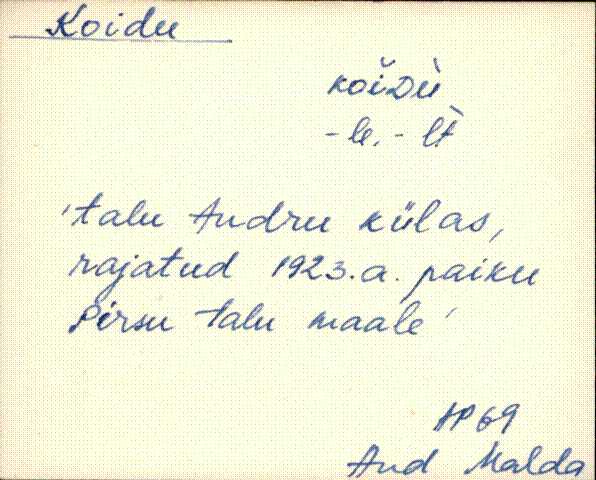 Koidu
koĭDù
-le, -lt̀
'talu Andru külas,
rajatud 1923.a. paiku
Pirsu talu maale'
AP 69
And Malda